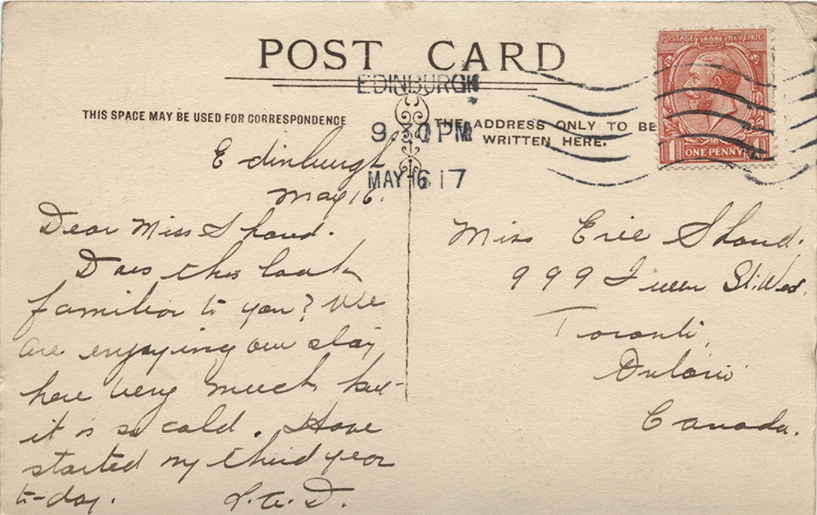 POST CARD
EDINBURGH
9.30PM
MAY 16 17
THIS SPACE MAY BE USED FOR CORRESPONDENCE
THE ADDRESS ONLY TO BE
WRITTEN HERE.
POSTAGE REVENUE
1 ONE PENNY 1
Edinburgh,
May 16.
Dear Miss Shand.
Does this look
familiar to you? We
are enjoying our stay
here very much but
it is so cold. Have
started my third year
to-day.
Miss Erie Shand.
999 Queen St. West.
Toronto,
Ontario
Canada.